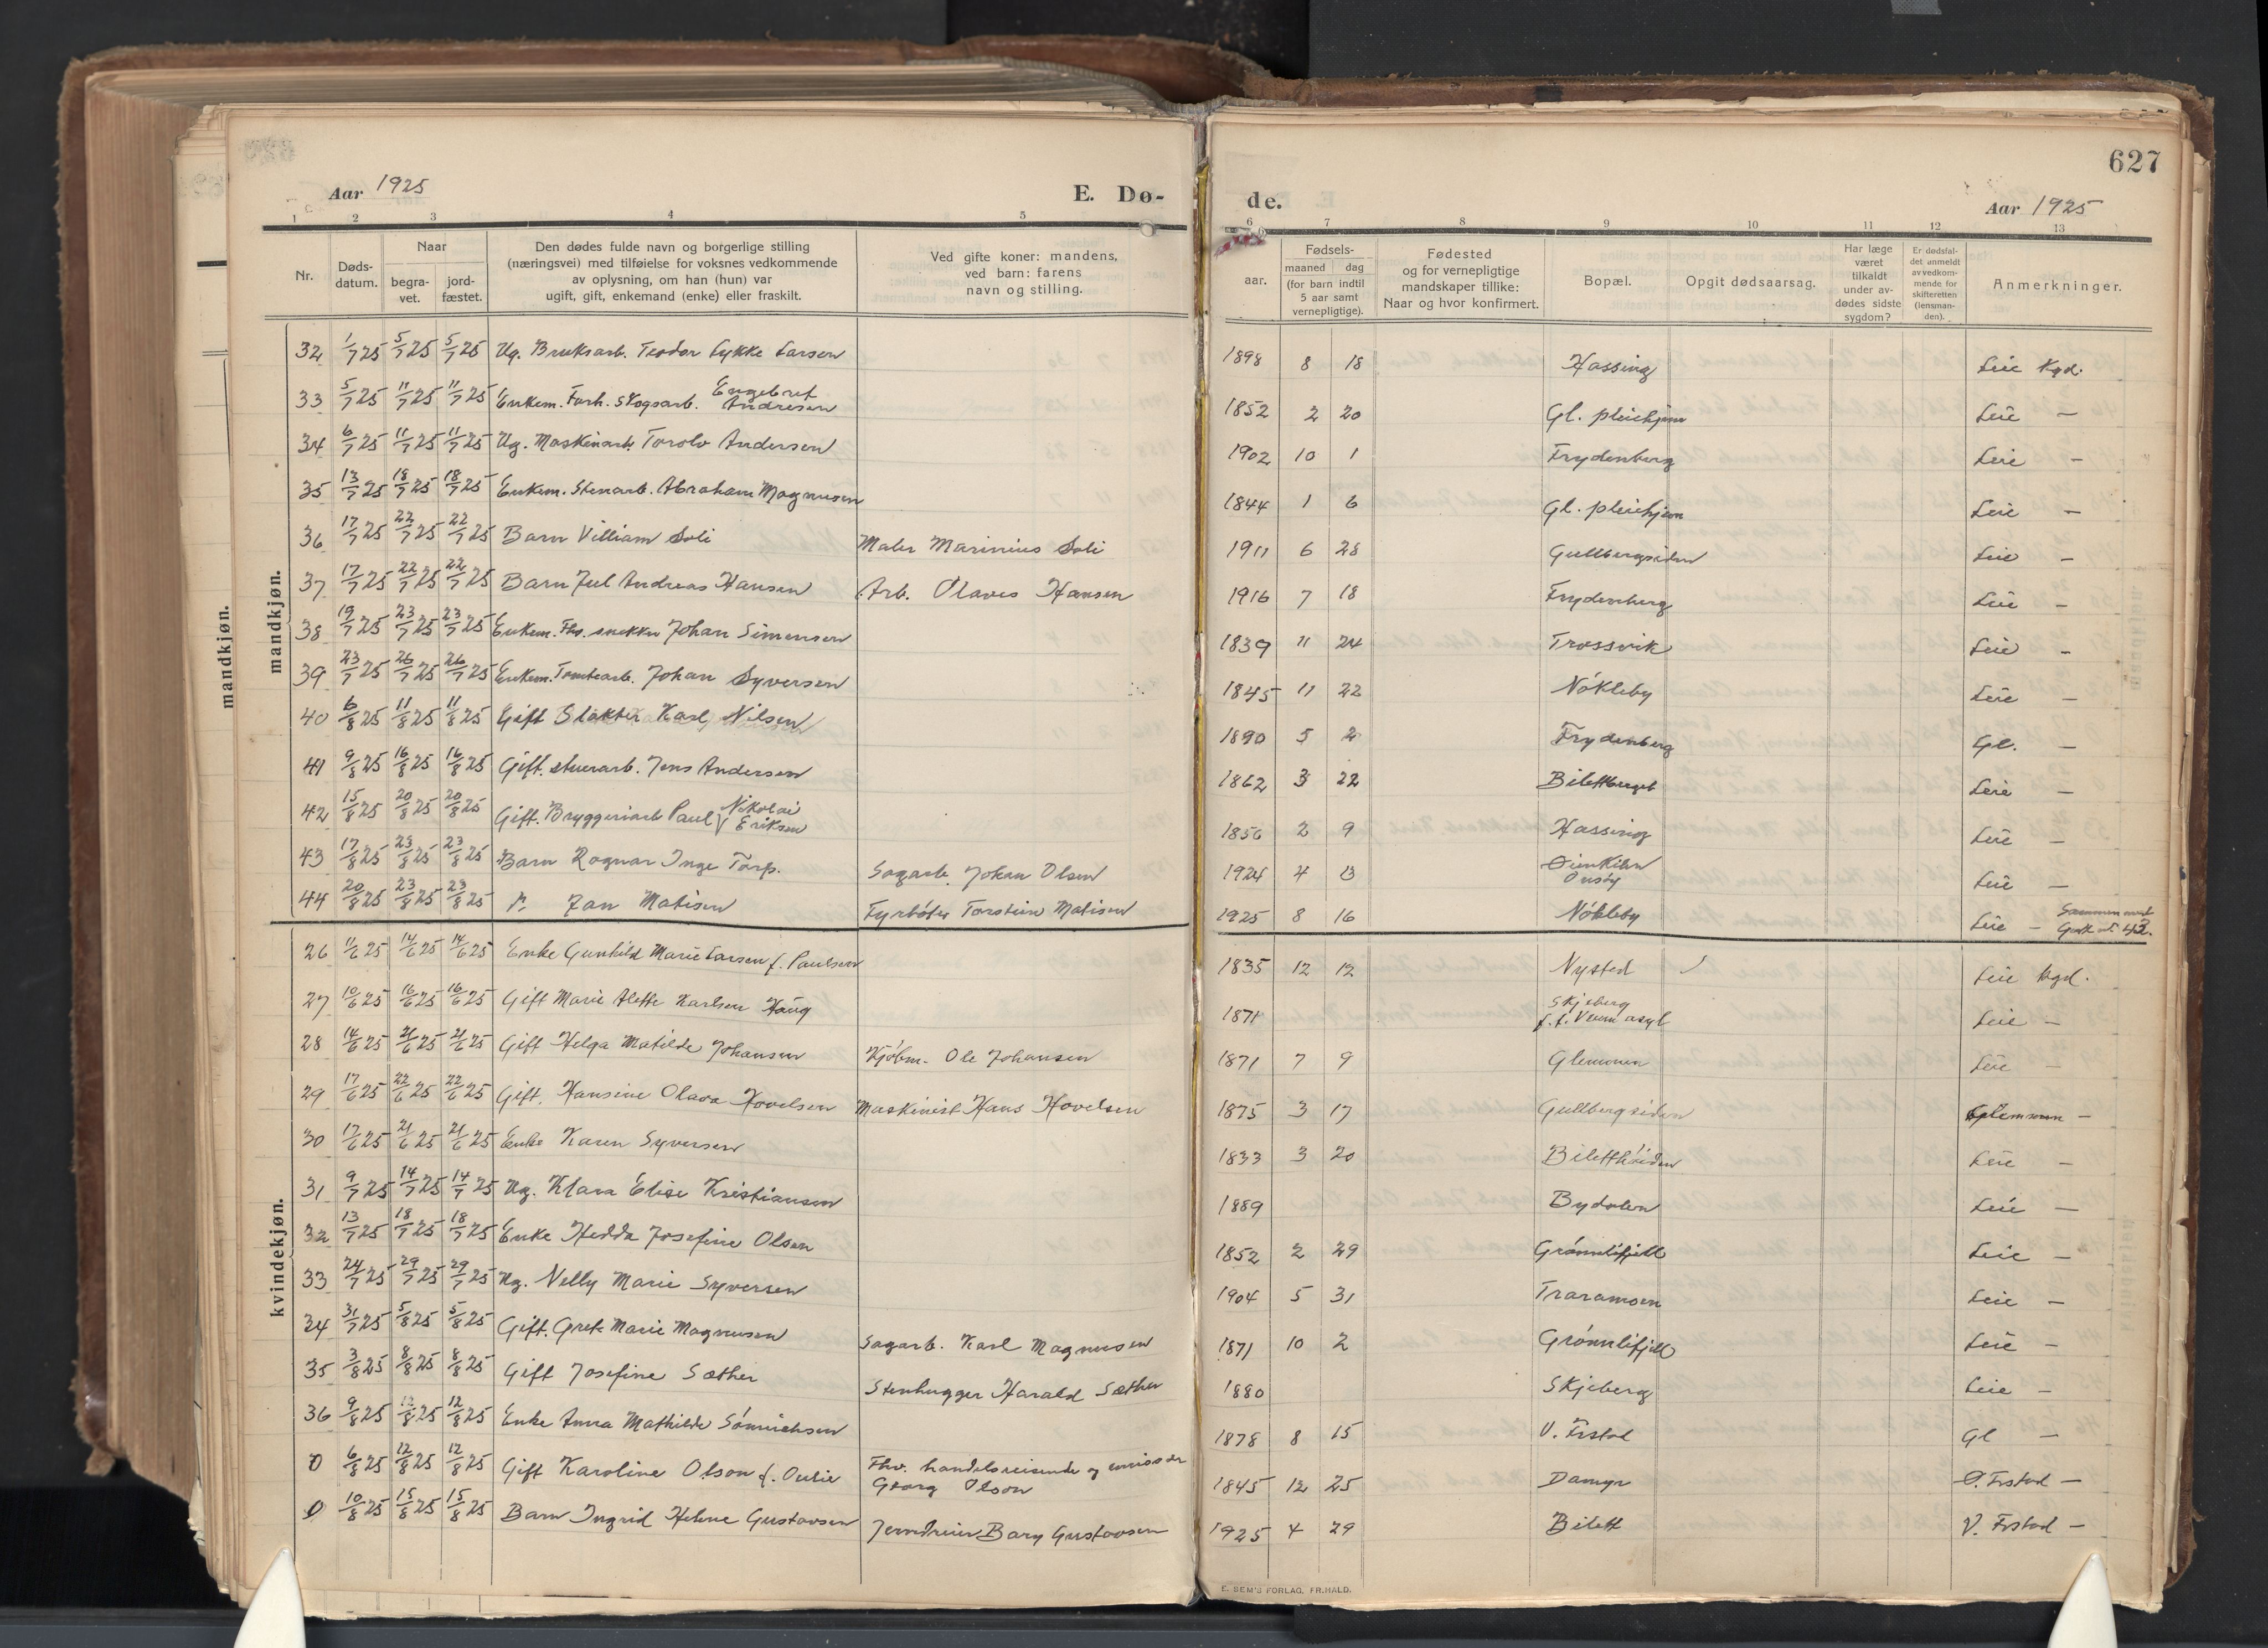 627
Aar 1925 E. Dø- de. Aar 1925
1 2 3 4 5 6 7 8 9 10 11 12 13
Nr. Døds-datum. Naar begra-vet. jord-fæstet. Den dødes fulde navn og borgerlige stilling (næringsvei) med tilføielse for voksnes vedkommende av oplysning, om han (hun) var ugift, gift, enkemand (enke) eller fraskilt. Ved gifte koner: mandens, ved barn: farens navn og stilling. aar. Fødsels- maaned dag (for barn indtil 5 aar samt vernepligtige). Fødested og for vernepligtige mandskaper tillike: Naar og hvor konfirmert. Bopæl. Opgit dødsaarsag. Har læge været tilkaldt under av-dødes sidste sygdom? Er dødsfal-det anmeldt av vedkom-mende for skifteretten (lensman-den). Anmerkninger.
mandkjøn.
mandkjøn.
32 1/7 25 5/7 25 5/7 25 Ug. Bruksarb. Teodor Lykke Larsen 1898 8 18 Hassing Leie Kgd.
33 5/7 25 11/7 25 11/7 25 Enkem. Forh. Skogsarb. Engebret Andresen 1852 2 20 Gl. pleiehjem Leie —
34 6/7 25 11/7 25 11/7 25 Ug. Maskinarb. Torolv Andersen 1902 10 1 Frydenberg Leie —
35 13/7 25 18/7 25 18/7 25 Enkem. Stenarb. Abraham Magnusen 1844 1 6 Gl. pleiehjem Leie —
36 17/7 25 22/7 25 22/7 25 Barn Villiam Soli Maler Marinius Soli 1911 6 28 Gullbergsiden Leie —
37 17/7 25 22/7 25 22/7 25 Barn Jul Andreas Hansen Arb. Olaves Hansen 1916 7 18 Frydenberg Leie —
38 19/7 25 23/7 25 23/7 25 Enkem. Fhv. snekker Johan Simensen 1839 11 24 Trossvik Leie —
39 23/7 25 26/7 25 26/7 25 Enkem. Tomtearb. Johan Syversen 1845 11 22 Nókleby Leie —
40 6/8 25 11/8 25 11/8 25 Gift Slakter Karl Nilsen 1890 5 2 Frydenberg Gl. —
41 9/8 25 16/8 25 16/8 25 Gift. stuerarb. Jens Andersen 1862 3 22 Bilettberget Leie —
42 15/8 25 20/8 25 20/8 25 Gift. Bryggeriarb Paul Nikolai Eriksen 1856 2 9 Hassing Leie —
43 17/8 25 23/8 25 23/8 25 Barn Ragnar Inge Torp. Sagarb. Johan Olsen 1924 4 13 Onsøy Leie —
44 20/8 25 23/8 25 23/8 25 Jan Matisen Fyrbøter Torstein Matisen 1925 8 16 Nókleby Leie — Sammen med 42.
kvindekjøn.
26 11/6 25 14/6 25 14/6 25 Enke Gunhild Marie Larsen f. Paulsen 1835 12 12 Nysted Leie kgd.
27 10/6 25 16/6 25 16/6 25 Gift Marie Alette Karlsen Haug 1871 Skjeberg f. t. Veum asyl Leie —
28 14/6 25 21/6 25 21/6 25 Gift Helga Matilde Johansen Kjøbm. Ole Johansen 1871 7 9 Glemmen Leie —
29 17/6 25 22/6 25 22/6 25 Gift. Hansine Olava Hovelsen Maskinist Hans Hovelsen 1875 3 17 Gullbergsiden Glemmen —
30 17/6 25 21/6 25 21/6 25 Enke Karen Syversen 1833 3 20 Biletthöiden Leie —
31 9/7 25 14/7 25 14/7 25 Ug. Klara Elise Kristiansen 1889 Bydalen Leie —
32 13/7 25 18/7 25 18/7 25 Enke Hedda Josefine Olsen 1852 2 29 Grønnlifjell Leie —
33 24/7 25 29/7 25 29/7 25 Ug. Nelly Marie Syversen 1904 5 31 Traramoen Leie —
34 31/7 25 5/8 25 5/8 25 Gift. Grete Marie Magnusen Sagarb. Karl Magnusen 1871 10 2 Grønnlifjell Leie —
35 3/8 25 8/8 25 8/8 25 Gift Josefine Sæther Stenhugger Harald Sæther 1880 Skjeberg Leie —
36 9/8 25 12/8 25 12/8 25 Enke Anna Mathilde Sónnichsen 1878 8 15 V. Frstad Gl —
0 6/8 25 12/8 25 12/8 25 Gift Karoline Olson f. Oulie Fhv. handelsreisende og emissær Georg Olson 1845 12 25 Damyr Ø. Frstad —
0 10/8 25 15/8 25 15/8 25 Barn Ingrid Helene Gustavsen Jerndreier Gustavsen 1925 4 29 Bilett V. Frstad —
E. SEM'S FORLAG, FR.HALD.